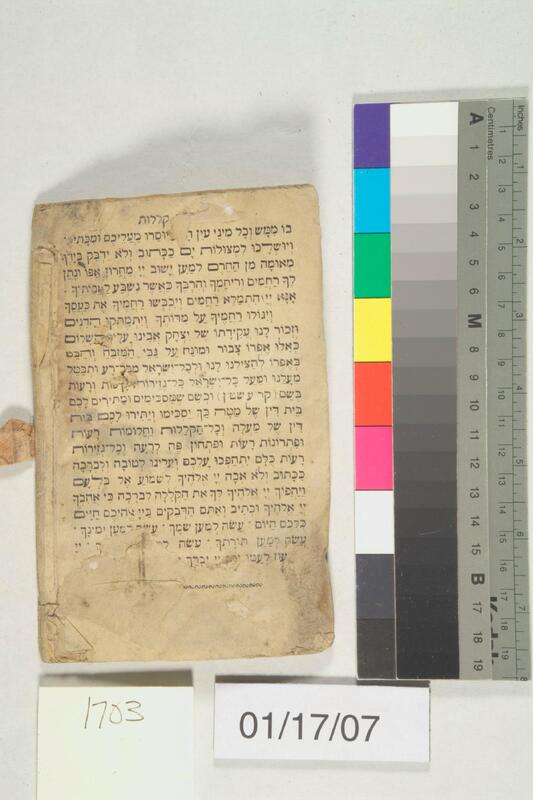 קללות
בו ממש וכל מיני עין יוסרו מעליכם ומבתי
ויושלכו למצולות ים ככתוב ולא ידבק בידך
מאומה מן החרם למען ישוב יי מחרון אפו ונתן
לך רחמים וריחמך והרבך כאשר נשבע לאבותיך
אנא יי התמלא רחמים ויכבשו רחמיך את כעסך
ויגולו רחמיך על מדותיך ויתמתקו הדינים
וזכור לנו עקידתו של יצחק אבינו עליו השלום
כאלו אפרו צבור ומונח על גבי המזבח והבט
באפרו להצילנו לנו ולכל ישראל מכל רע ותבטל
מעלנו ומעל כל ישראל כל גזירות קשות ורעות
בשם (קר״ע שט״ן) וכשם שמסכימים ומתירים לכם
בית דין של מטה כך יסכימו ויתירו לכם בית
דין של מעלה וכל הקללות וחלומות רעות
ופתרונות רעות ופתחון פה לרעה וכל גזירות
רעות כלם יתהפכו עלכם ועלינו לטובה ולברכה
ככתוב ולא אבה יי אלהיך לשמוע אל בלעם
ויהפוך יי אלהיך לך את הקללה לברכה כי אהבך
יי אלהיך וכתיב ואתם הדבקים ביי אלהיכם חיים
כלכם היום עשה למען שמך עשה למען ימינך
עשה למען תורתך עשה ך יי
עוז לעמו יי יברך
A
1
2
3
4
5
6
M
8
9
10
11
12
13
14
15
B
17
18
19
Centimetres
Inches
Kodak
1703
01/17/07